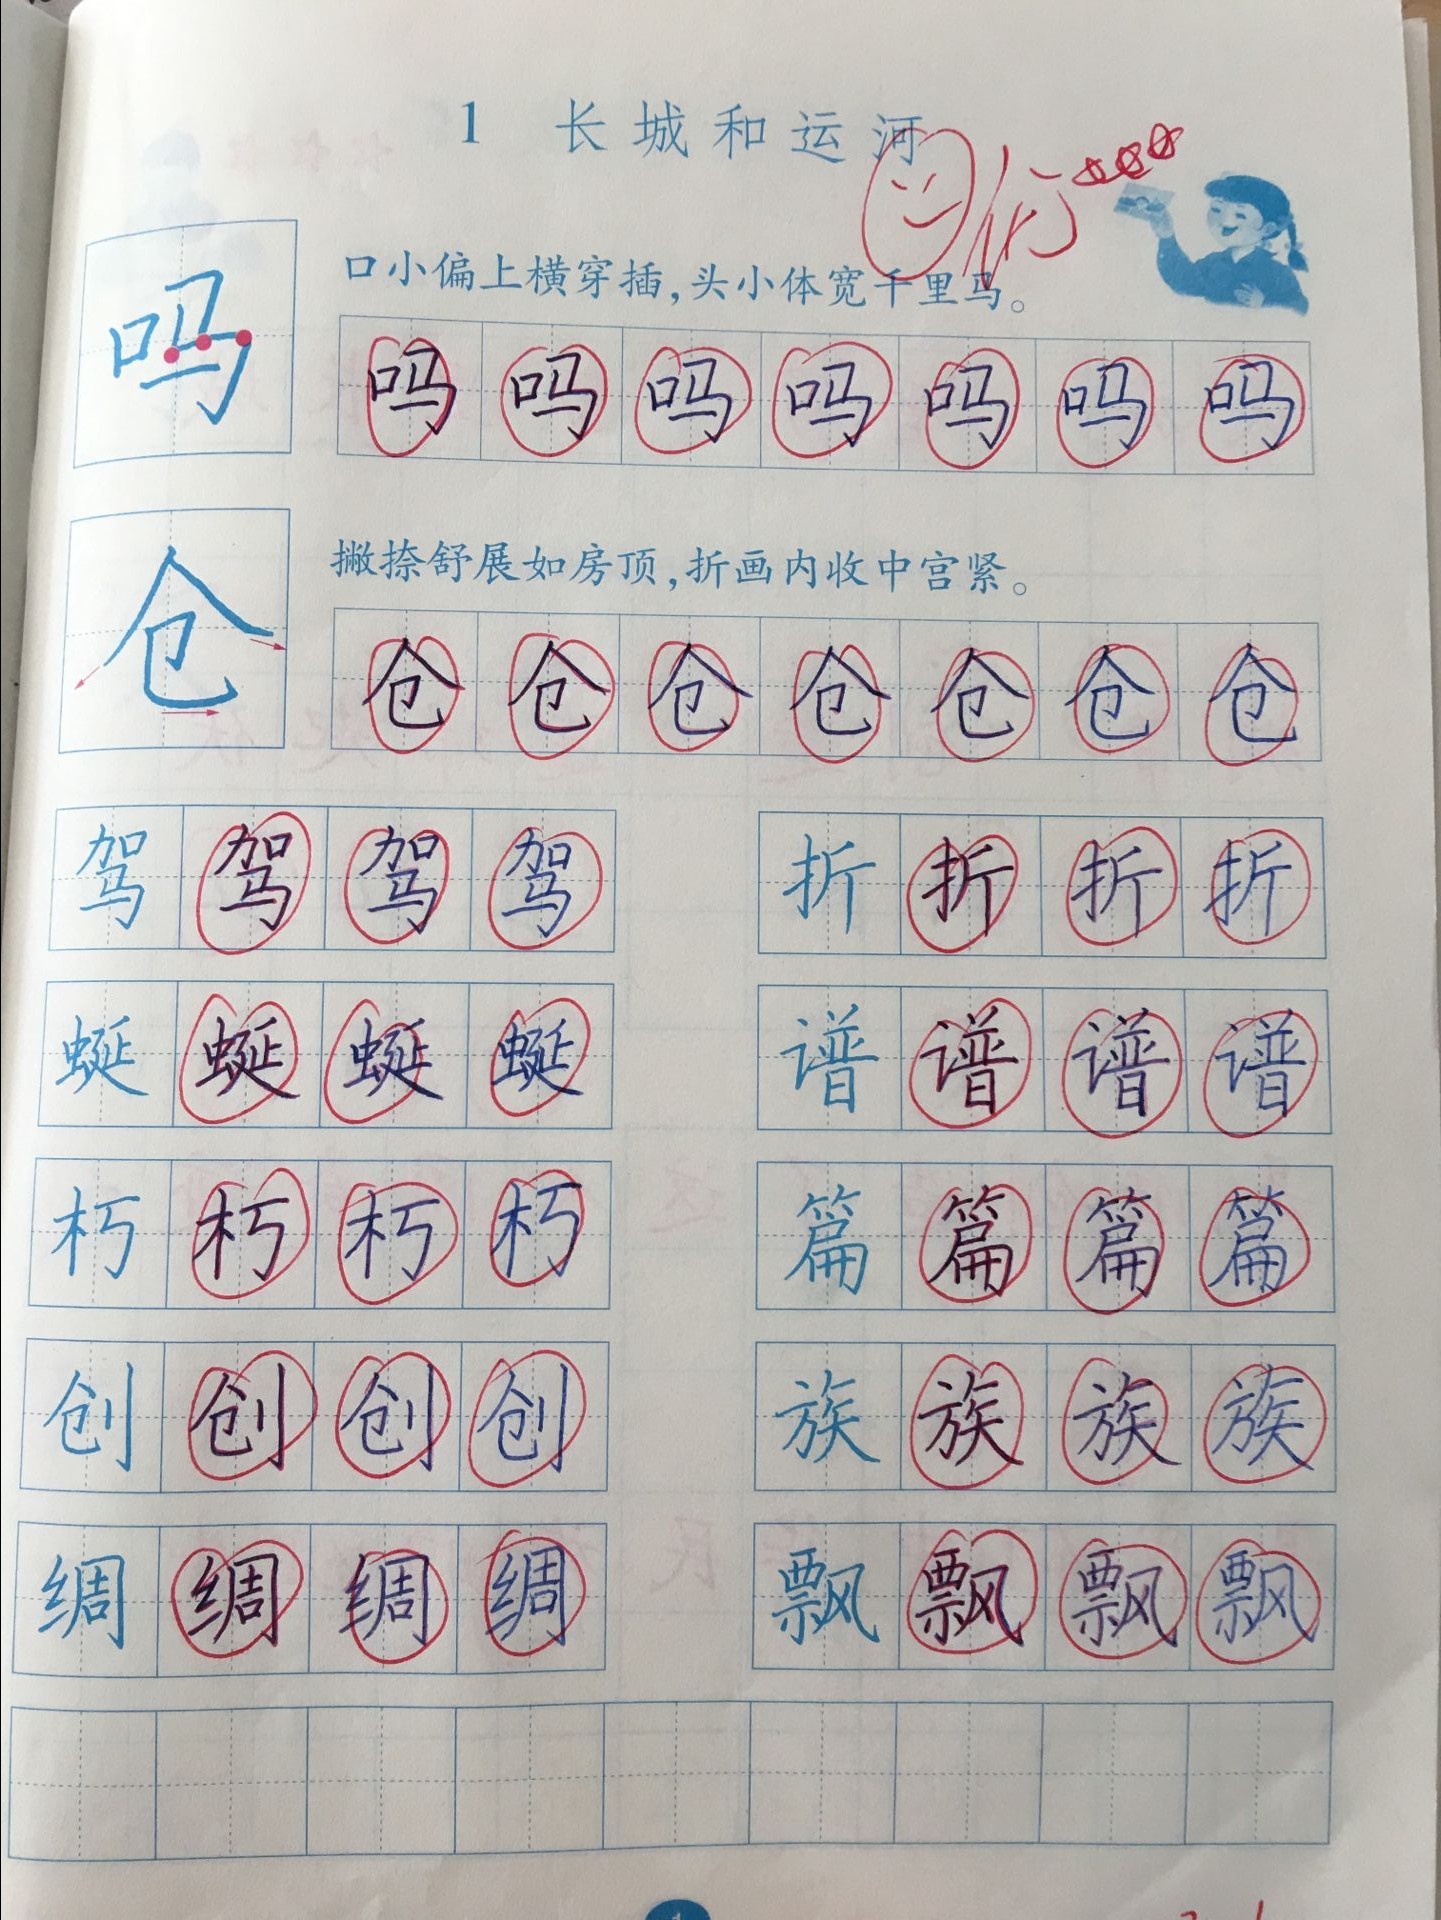 1 长城和运河
优
吗 口小偏上横穿插，头小体宽千里马。
吗 吗 吗 吗 吗 吗 吗
仓 撇捺舒展如房顶，折画内收中宫紧。
仓 仓 仓 仓 仓 仓 仓
驾 驾 驾 驾 折 折 折 折
蜒 蜒 蜒 蜒 谱 谱 谱 谱
朽 朽 朽 朽 篇 篇 篇 篇
创 创 创 创 族 族 族 族
绸 绸 绸 绸 飘 飘 飘 飘
1